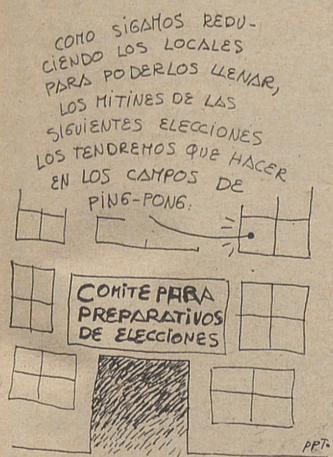 COMO SIGAMOS REDU-
CIENDO LOS LOCALES
PARA PODERLOS LLENAR,
LOS MITINES DE LAS
SIGUIENTES ELECCIONES
LOS TENDREMOS QUE HACER
EN LOS CAMPOS DE
PING-PONG.
COMITE PARA
PREPARATIVOS
DE ELECCIONES
PPT.